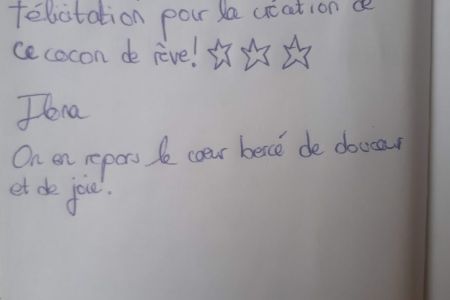 félicitation pour la création de
ce cocon de rêve! ☆ ☆ ☆
Ilona
On en repars le cœur bercé de douceur
et de joie.